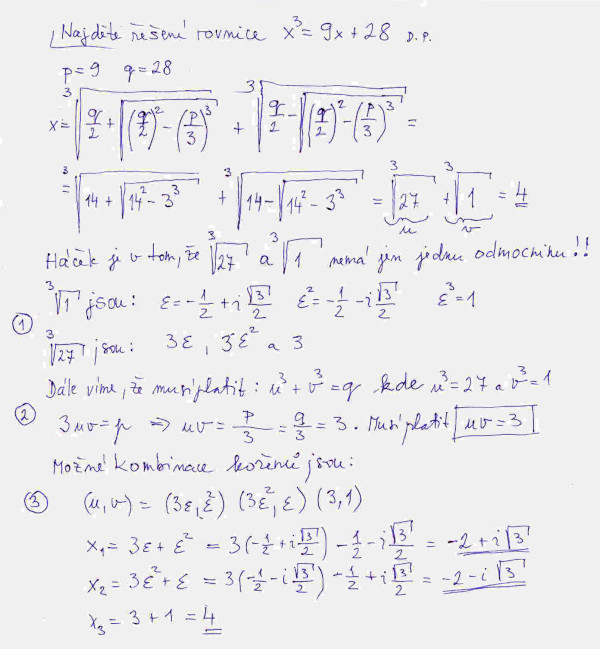 Najděte řešení rovnice x³ = 9x + 28 D.P.
p = 9 q = 28
x = ∛(q/2 + √((q/2)² − (p/3)³)) + ∛(q/2 − √((q/2)² − (p/3)³)) =
= ∛(14 + √(14² − 3³)) + ∛(14 − √(14² − 3³)) = ∛27 + ∛1 = 4
u v
Háček je v tom, že ∛27 a ∛1 nemá jen jednu odmocninu!!
① ∛1 jsou: ε = −1/2 + i √3/2 ε² = −1/2 − i √3/2 ε³ = 1
∛27 jsou: 3ε, 3ε² a 3
Dále víme, že musí platit: u³ + v³ = q kde u³ = 27 a v³ = 1
② 3uv = p ⇒ uv = p/3 = 9/3 = 3. Musí platit uv = 3
Možné kombinace kořenů jsou:
③ (u,v) = (3ε, ε²) (3ε², ε) (3,1)
x₁ = 3ε + ε² = 3(−1/2 + i √3/2) − 1/2 − i √3/2 = −2 + i √3
x₂ = 3ε² + ε = 3(−1/2 − i √3/2) − 1/2 + i √3/2 = −2 − i √3
x₃ = 3 + 1 = 4